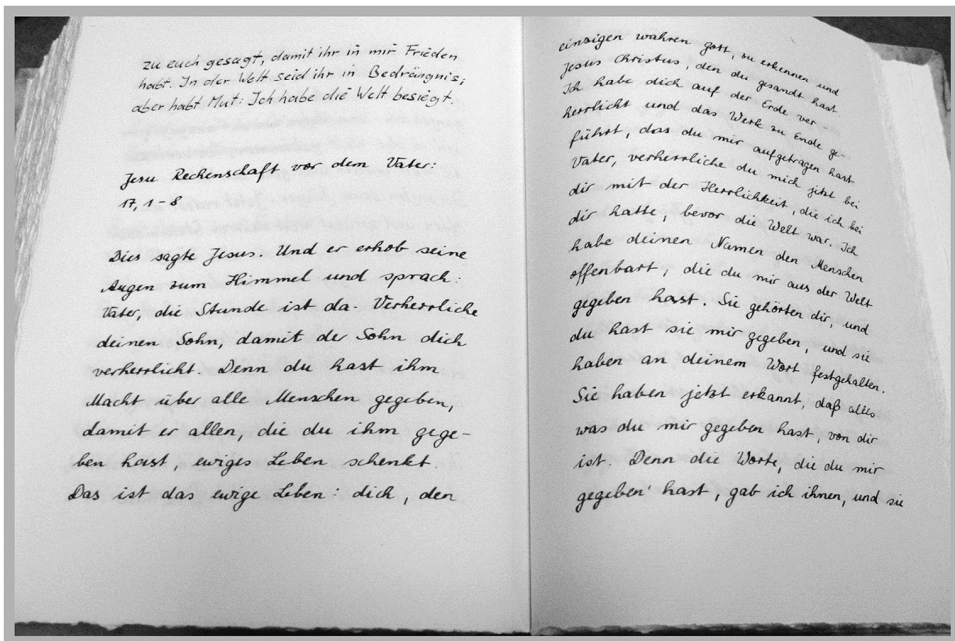 zu euch gesagt, damit ihr in mir Frieden
habt. In der Welt seid ihr in Bedrängnis;
aber habt Mut: Ich habe die Welt besiegt.
Jesu Rechenschaft vor dem Vater:
17, 1-8
Dies sagte Jesus. Und er erhob seine
Augen zum Himmel und sprach:
Vater, die Stunde ist da. Verherrliche
deinen Sohn, damit der Sohn dich
verherrlicht. Denn du hast ihm
Macht über alle Menschen gegeben,
damit er allen, die du ihm gege-
ben hast, ewiges Leben schenkt.
Das ist das ewige Leben: dich, den
einzigen wahren Gott, zu erkennen und
Jesus Christus, den du gesandt hast.
Ich habe dich auf der Erde ver-
herrlicht und das Werk zu Ende ge-
führt, das du mir aufgetragen hast.
Vater, verherrliche du mich jetzt bei
dir mit der Herrlichkeit, die ich bei
dir hatte, bevor die Welt war. Ich
habe deinen Namen den Menschen
offenbart, die du mir aus der Welt
gegeben hast. Sie gehörten dir, und
du hast sie mir gegeben, und sie
haben an deinem Wort festgehalten.
Sie haben jetzt erkannt, daß alles
was du mir gegeben hast, von dir
ist. Denn die Worte, die du mir
gegeben hast, gab ich ihnen, und sie